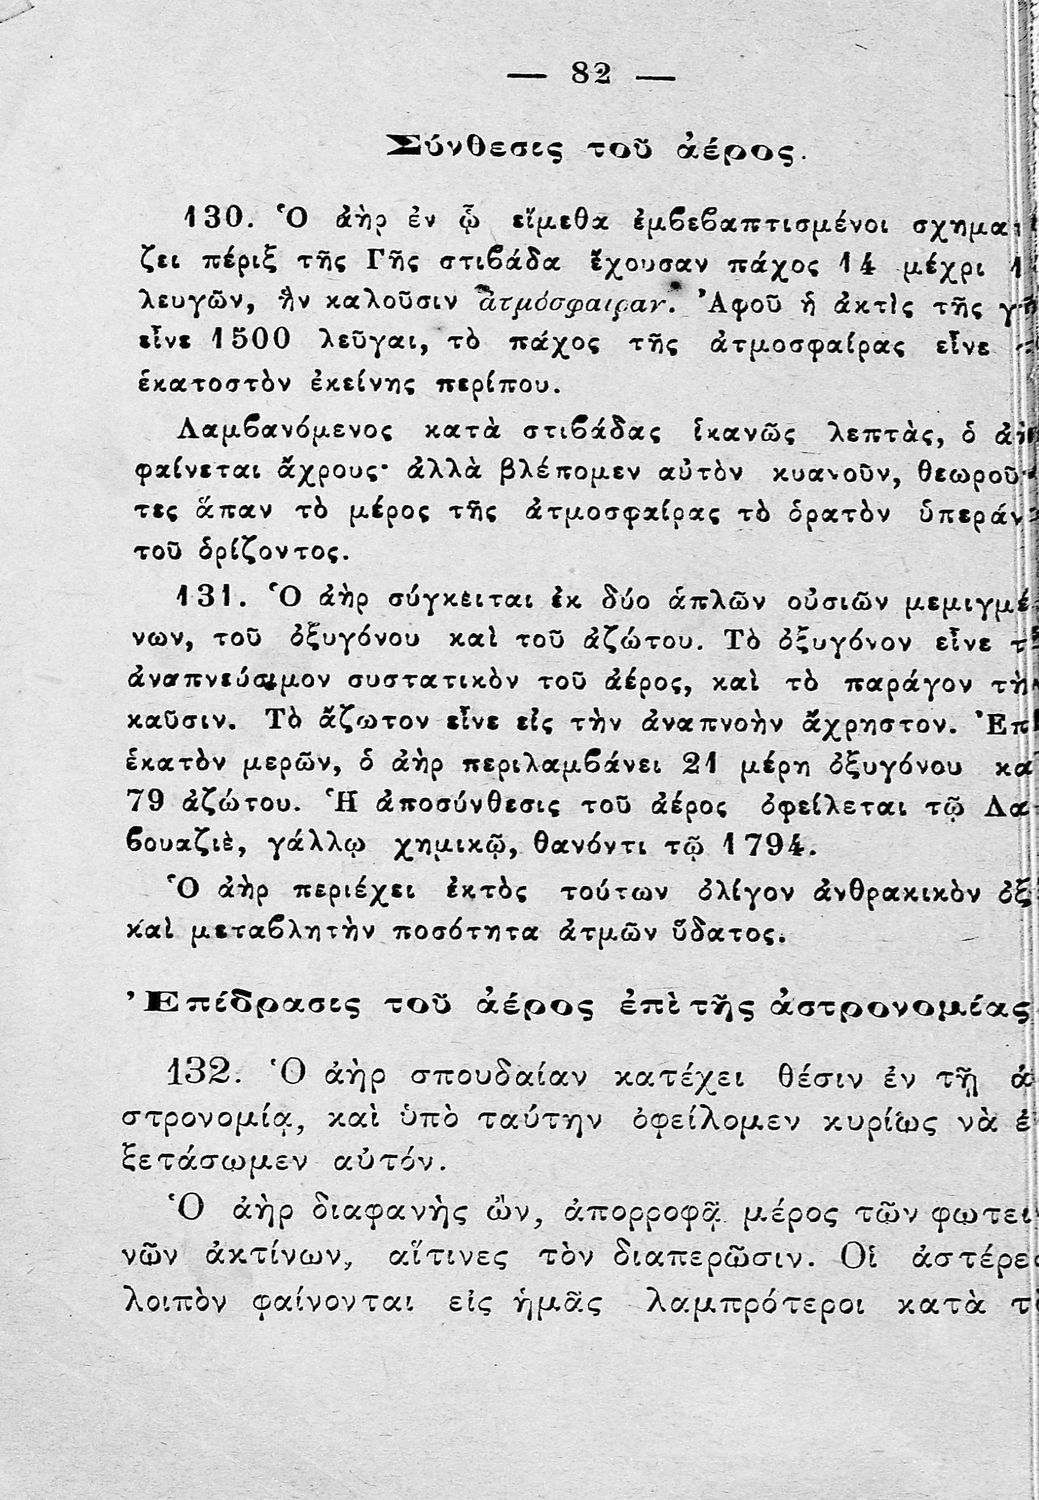 — 82 —
Σύνθεσις τοῦ ἀέρος.
130. Ὁ ἀὴρ ἐν ᾧ εἴμεθα ἐμβεβαπτισμένοι σχηματί
ζει πέριξ τῆς Γῆς στιβάδα ἔχουσαν πάχος 14 μέχρι
λευγῶν, ἣν καλοῦσιν ἀτμόσφαιραν. Ἀφοῦ ἡ ἀκτὶς τῆς γῆ
εἶνε 1500 λεῦγαι, τὸ πάχος τῆς ἀτμοσφαίρας εἶνε
ἑκατοστὸν ἐκείνης περίπου.
Λαμβανόμενος κατὰ στιβάδας ἱκανῶς λεπτὰς, ὁ ἀὴρ
φαίνεται ἄχρους· ἀλλὰ βλέπομεν αὐτὸν κυανοῦν, θεωροῦν
τες ἅπαν τὸ μέρος τῆς ἀτμοσφαίρας τὸ ὁρατὸν ὑπεράν
τοῦ ὁρίζοντος.
131. Ὁ ἀὴρ σύγκειται ἐκ δύο ἁπλῶν οὐσιῶν μεμιγμέ
νων, τοῦ ὀξυγόνου καὶ τοῦ ἀζώτου. Τὸ ὀξυγόνον εἶνε τὸ
ἀναπνεύσιμον συστατικὸν τοῦ ἀέρος, καὶ τὸ παράγον τὴν
καῦσιν. Τὸ ἄζωτον εἶνε εἰς τὴν ἀναπνοὴν ἄχρηστον. Ἐπὶ
ἑκατὸν μερῶν, ὁ ἀὴρ περιλαμβάνει 21 μέρη ὀξυγόνου καὶ
79 ἀζώτου. Ἡ ἀποσύνθεσις τοῦ ἀέρος ὀφείλεται τῷ Λα
βουαζιὲ, γάλλῳ χημικῷ, θανόντι τῷ 1794.
Ὁ ἀὴρ περιέχει ἐκτὸς τούτων ὀλίγον ἀνθρακικὸν ὀξὺ
καὶ μεταβλητὴν ποσότητα ἀτμῶν ὕδατος.
Ἐπίδρασις τοῦ ἀέρος ἐπὶ τῆς ἀστρονομίας
132. Ὁ ἀὴρ σπουδαίαν κατέχει θέσιν ἐν τῇ ἀ
στρονομίᾳ, καὶ ὑπὸ ταύτην ὀφείλομεν κυρίως νὰ ἐ
ξετάσωμεν αὐτόν.
Ὁ ἀὴρ διαφανὴς ὢν, ἀπορροφᾷ μέρος τῶν φωτει
νῶν ἀκτίνων, αἵτινες τὸν διαπερῶσιν. Οἱ ἀστέρες
λοιπὸν φαίνονται εἰς ἡμᾶς λαμπρότεροι κατὰ τὸ